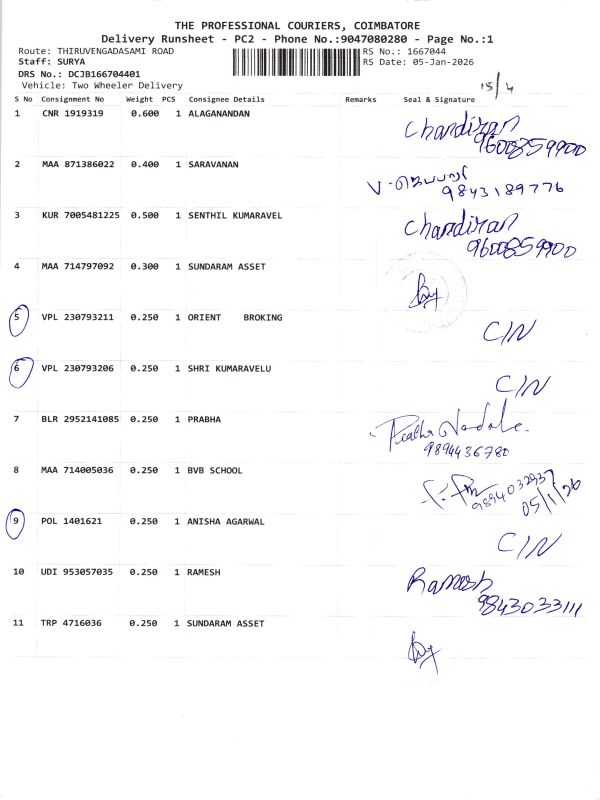 THE PROFESSIONAL COURIERS, COIMBATORE
Delivery Runsheet - PC2 - Phone No.:9047080280 - Page No.:1
Route: THIRUVENGADASAMI ROAD
RS No.: 1667044
Staff: SURYA
RS Date: 05-Jan-2026
DRS No.: DCJB166704401
Vehicle: Two Wheeler Delivery
15/4
S No Consignment No Weight PCS Consignee Details Remarks Seal & Signature
1 CNR 1919319 0.600 1 ALAGANANDAN Chandiran
9600859900
2 MAA 871386022 0.400 1 SARAVANAN
9843189776
3 KUR 7005481225 0.500 1 SENTHIL KUMARAVEL Chandiran
9600859900
4 MAA 714797092 0.300 1 SUNDARAM ASSET
5 VPL 230793211 0.250 1 ORIENT BROKING C/N
6 VPL 230793206 0.250 1 SHRI KUMARAVELU C/N
7 BLR 2952141085 0.250 1 PRABHA
9894436780
8 MAA 714005036 0.250 1 BVB SCHOOL
9894032937
05/1/26
9 POL 1401621 0.250 1 ANISHA AGARWAL C/N
10 UDI 953057035 0.250 1 RAMESH Ramesh
9843033111
11 TRP 4716036 0.250 1 SUNDARAM ASSET